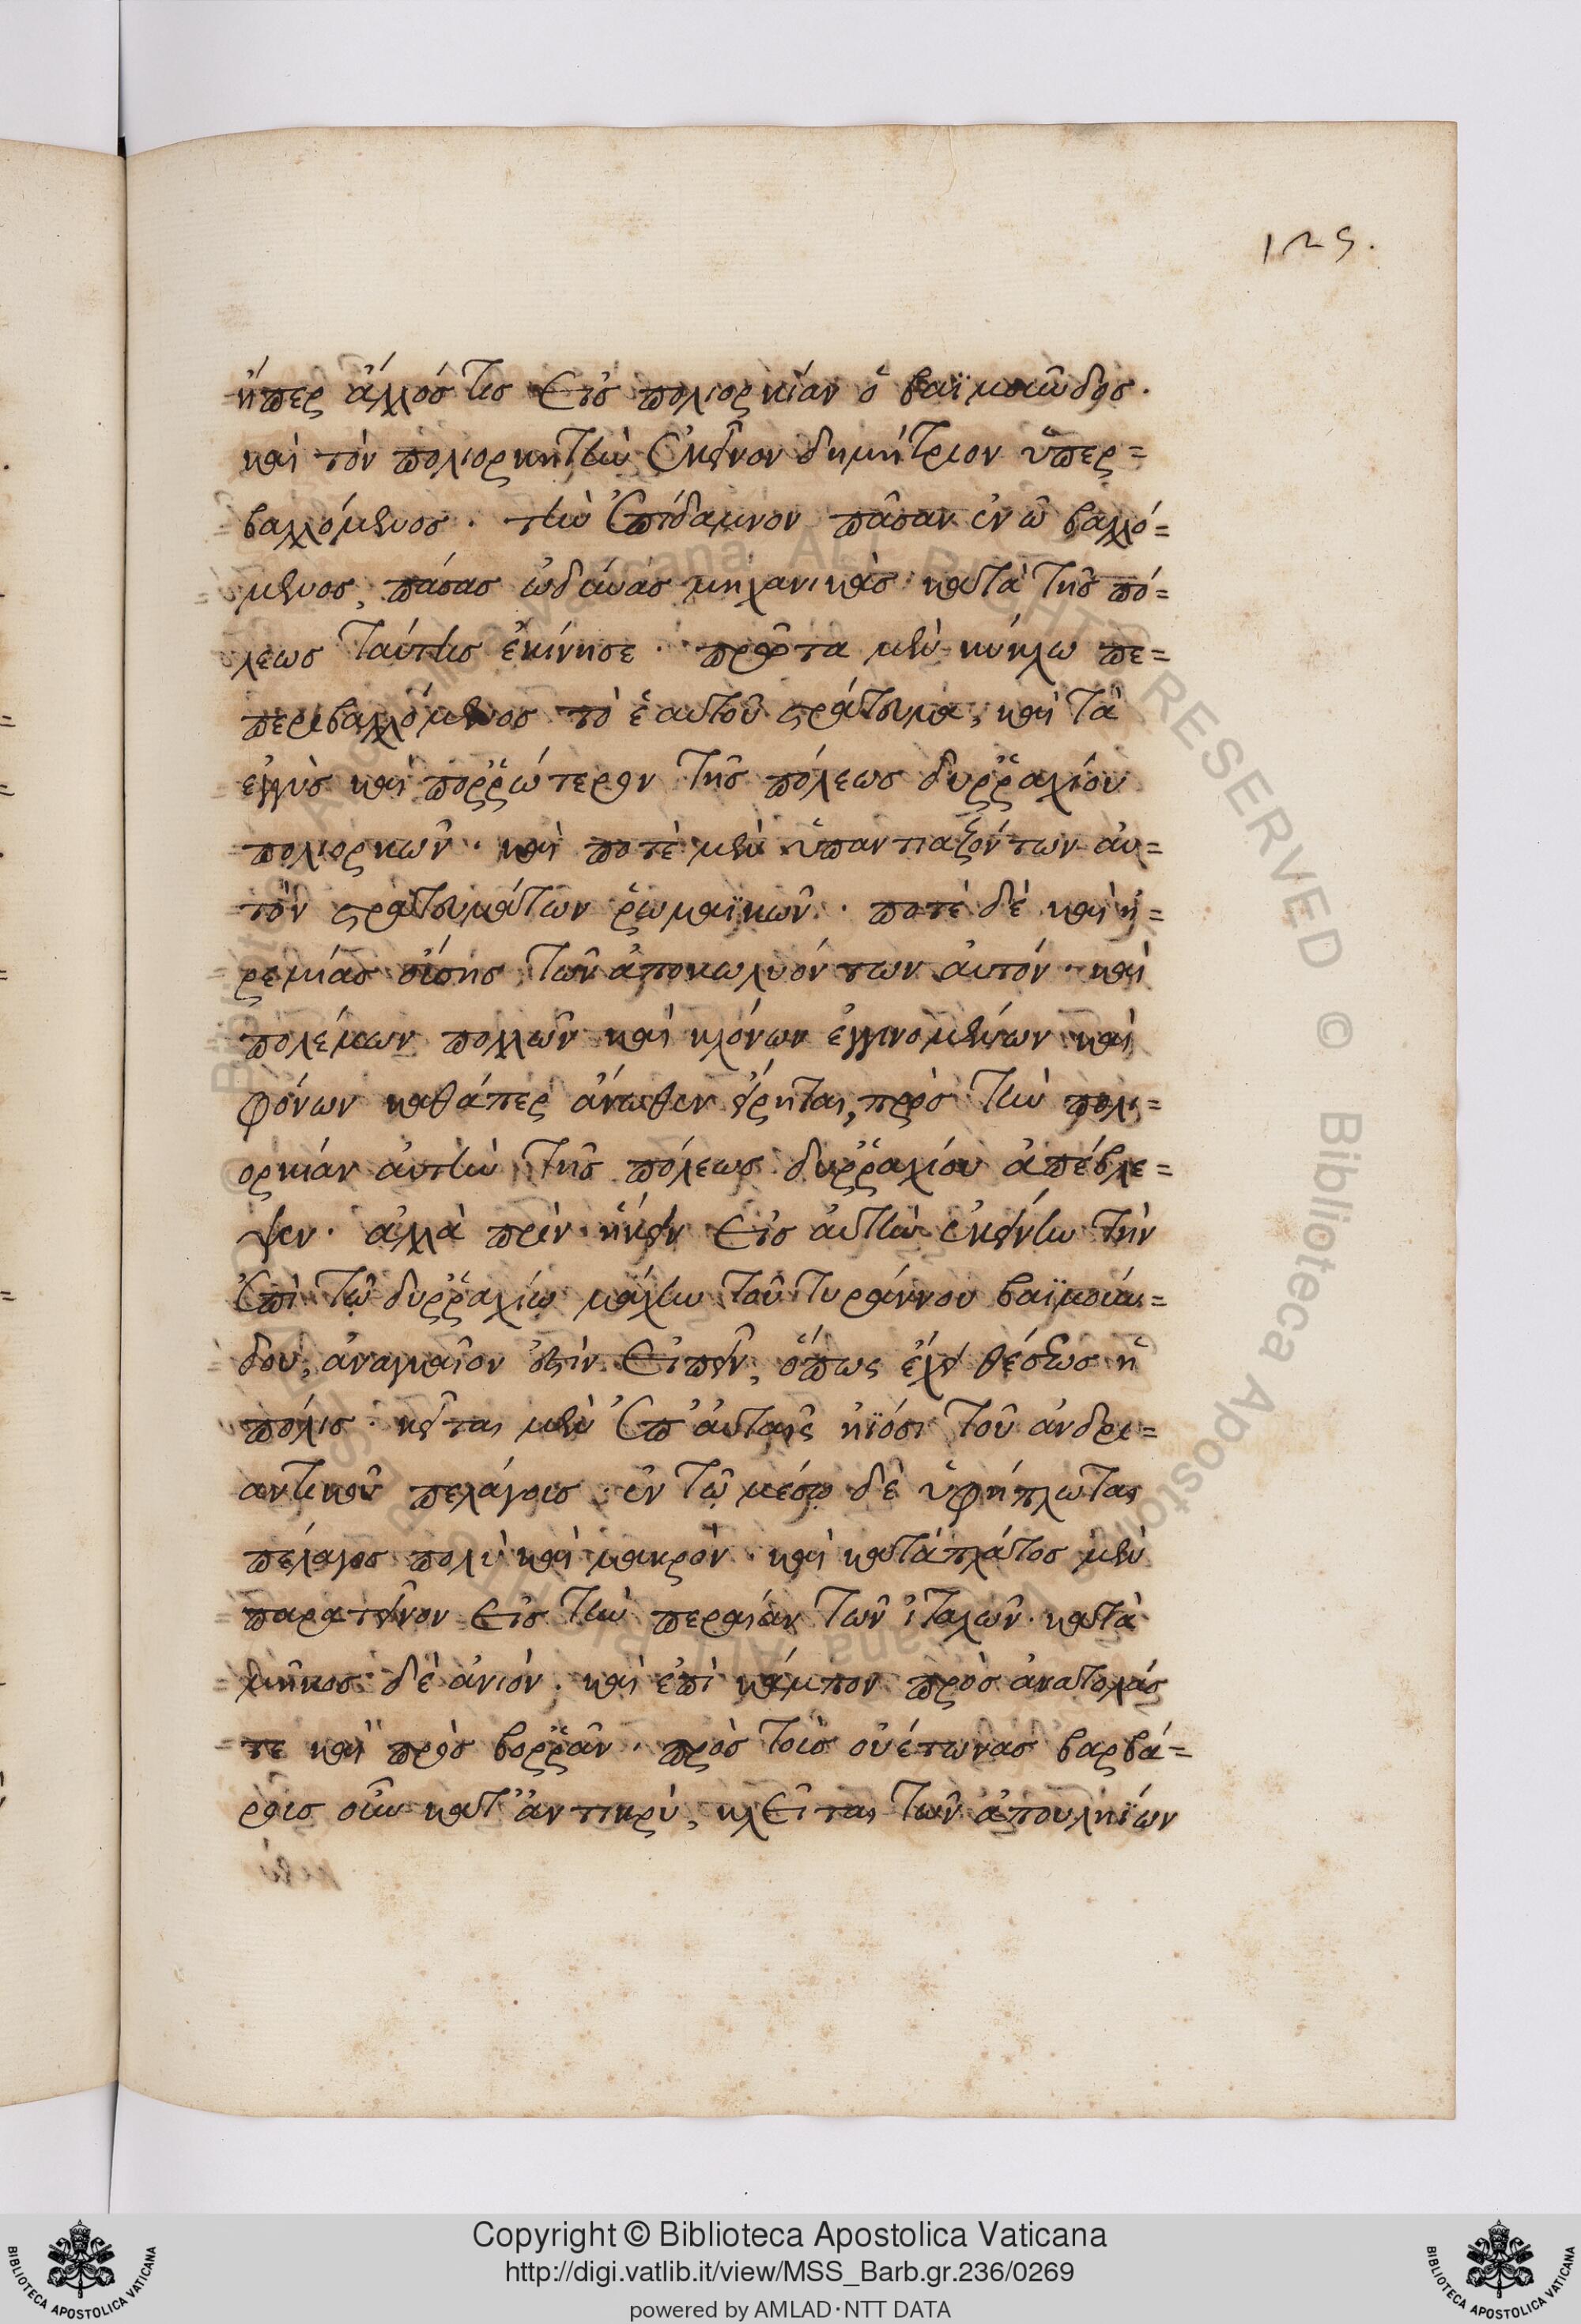 125.
ἤπερ ἄλλός τις εἰς πολιορκίαν ὁ βαϊμοῦνδος.
καὶ τὸν πολιορκητὴν ἐκεῖνον δημήτριον ὑπερ=
βαλλόμενος. τὴν ἐπίδαμνον πᾶσαν ἐν ῶ βαλλό=
μενος, πάσας ὠδίνας μηχανικὰς κατὰ τῆς πό=
λεως ταύτης ἐκίνησε. πρῶτα μὲν κύκλω πε=
περιβαλλόμενος τὸ ἑαυτοῦ στράτευμα, καὶ τὰ
ἐγγὺς καὶ πορῤῥώτερον τῆς πόλεως δυῤῥαχίου
πολιορκῶν. καὶ ποτὲ μὲν ὑπαντιαζόντων αὐ=
τὸν στρατευμάτων ῥωμαϊκῶν. ποτὲ δὲ καὶ ἠ=
ρεμίας οὔσης τῶν ἀποκωλυόντων αὐτόν. καὶ
πολέμων πολλῶν καὶ κλόνων ἐγγινομένων καὶ
φόνων καθάπερ ἄνωθεν εἴρηται, πρὸς τὴν πολι=
ορκίαν αὐτὴν τῆς πόλεως δυῤῥαχίου ἀπέβλε=
ψεν. ἀλλὰ πρὶν ἥκειν εἰς αὐτὴν ἐκείνην τὴν
ἐπὶ τῷ δυῤῥαχίῳ μάχην τοῦ τυράννου βαϊμούν=
δου, ἀναγκαῖον ἐστὶν εἰπεῖν, ὅπως ἔχει θέσεως ἡ
πόλις. κεῖται μὲν ἐπ' αὐταῖς ἠϊόσι τοῦ ἀνδρι=
αντικοῦ πελάγοις. ἐν τῷ μέσῳ δὲ ὑφήπλωται
πέλαγος πολὺ καὶ μακρόν. καὶ κατὰ πλάτος μὲν
παρατεῖνον εἰς τὴν περαίαν τῶν ἰταλῶν. κατὰ
μῆκος δὲ ἀνιόν. καὶ ἐπὶ κάμπον πρὸς ἀνατολάς
τε καὶ πρὸς βοῤῥᾶν. πρὸς τοῖς οὐέτωνας βαρβά=
ροις οὖν κατ' ἀντικρύ, κλεῖται τῶν ἀπουληΐων
μὲν
Copyright © Biblioteca Apostolica Vaticana
http://digi.vatlib.it/view/MSS_Barb.gr.236/0269
powered by AMLAD·NTT DATA